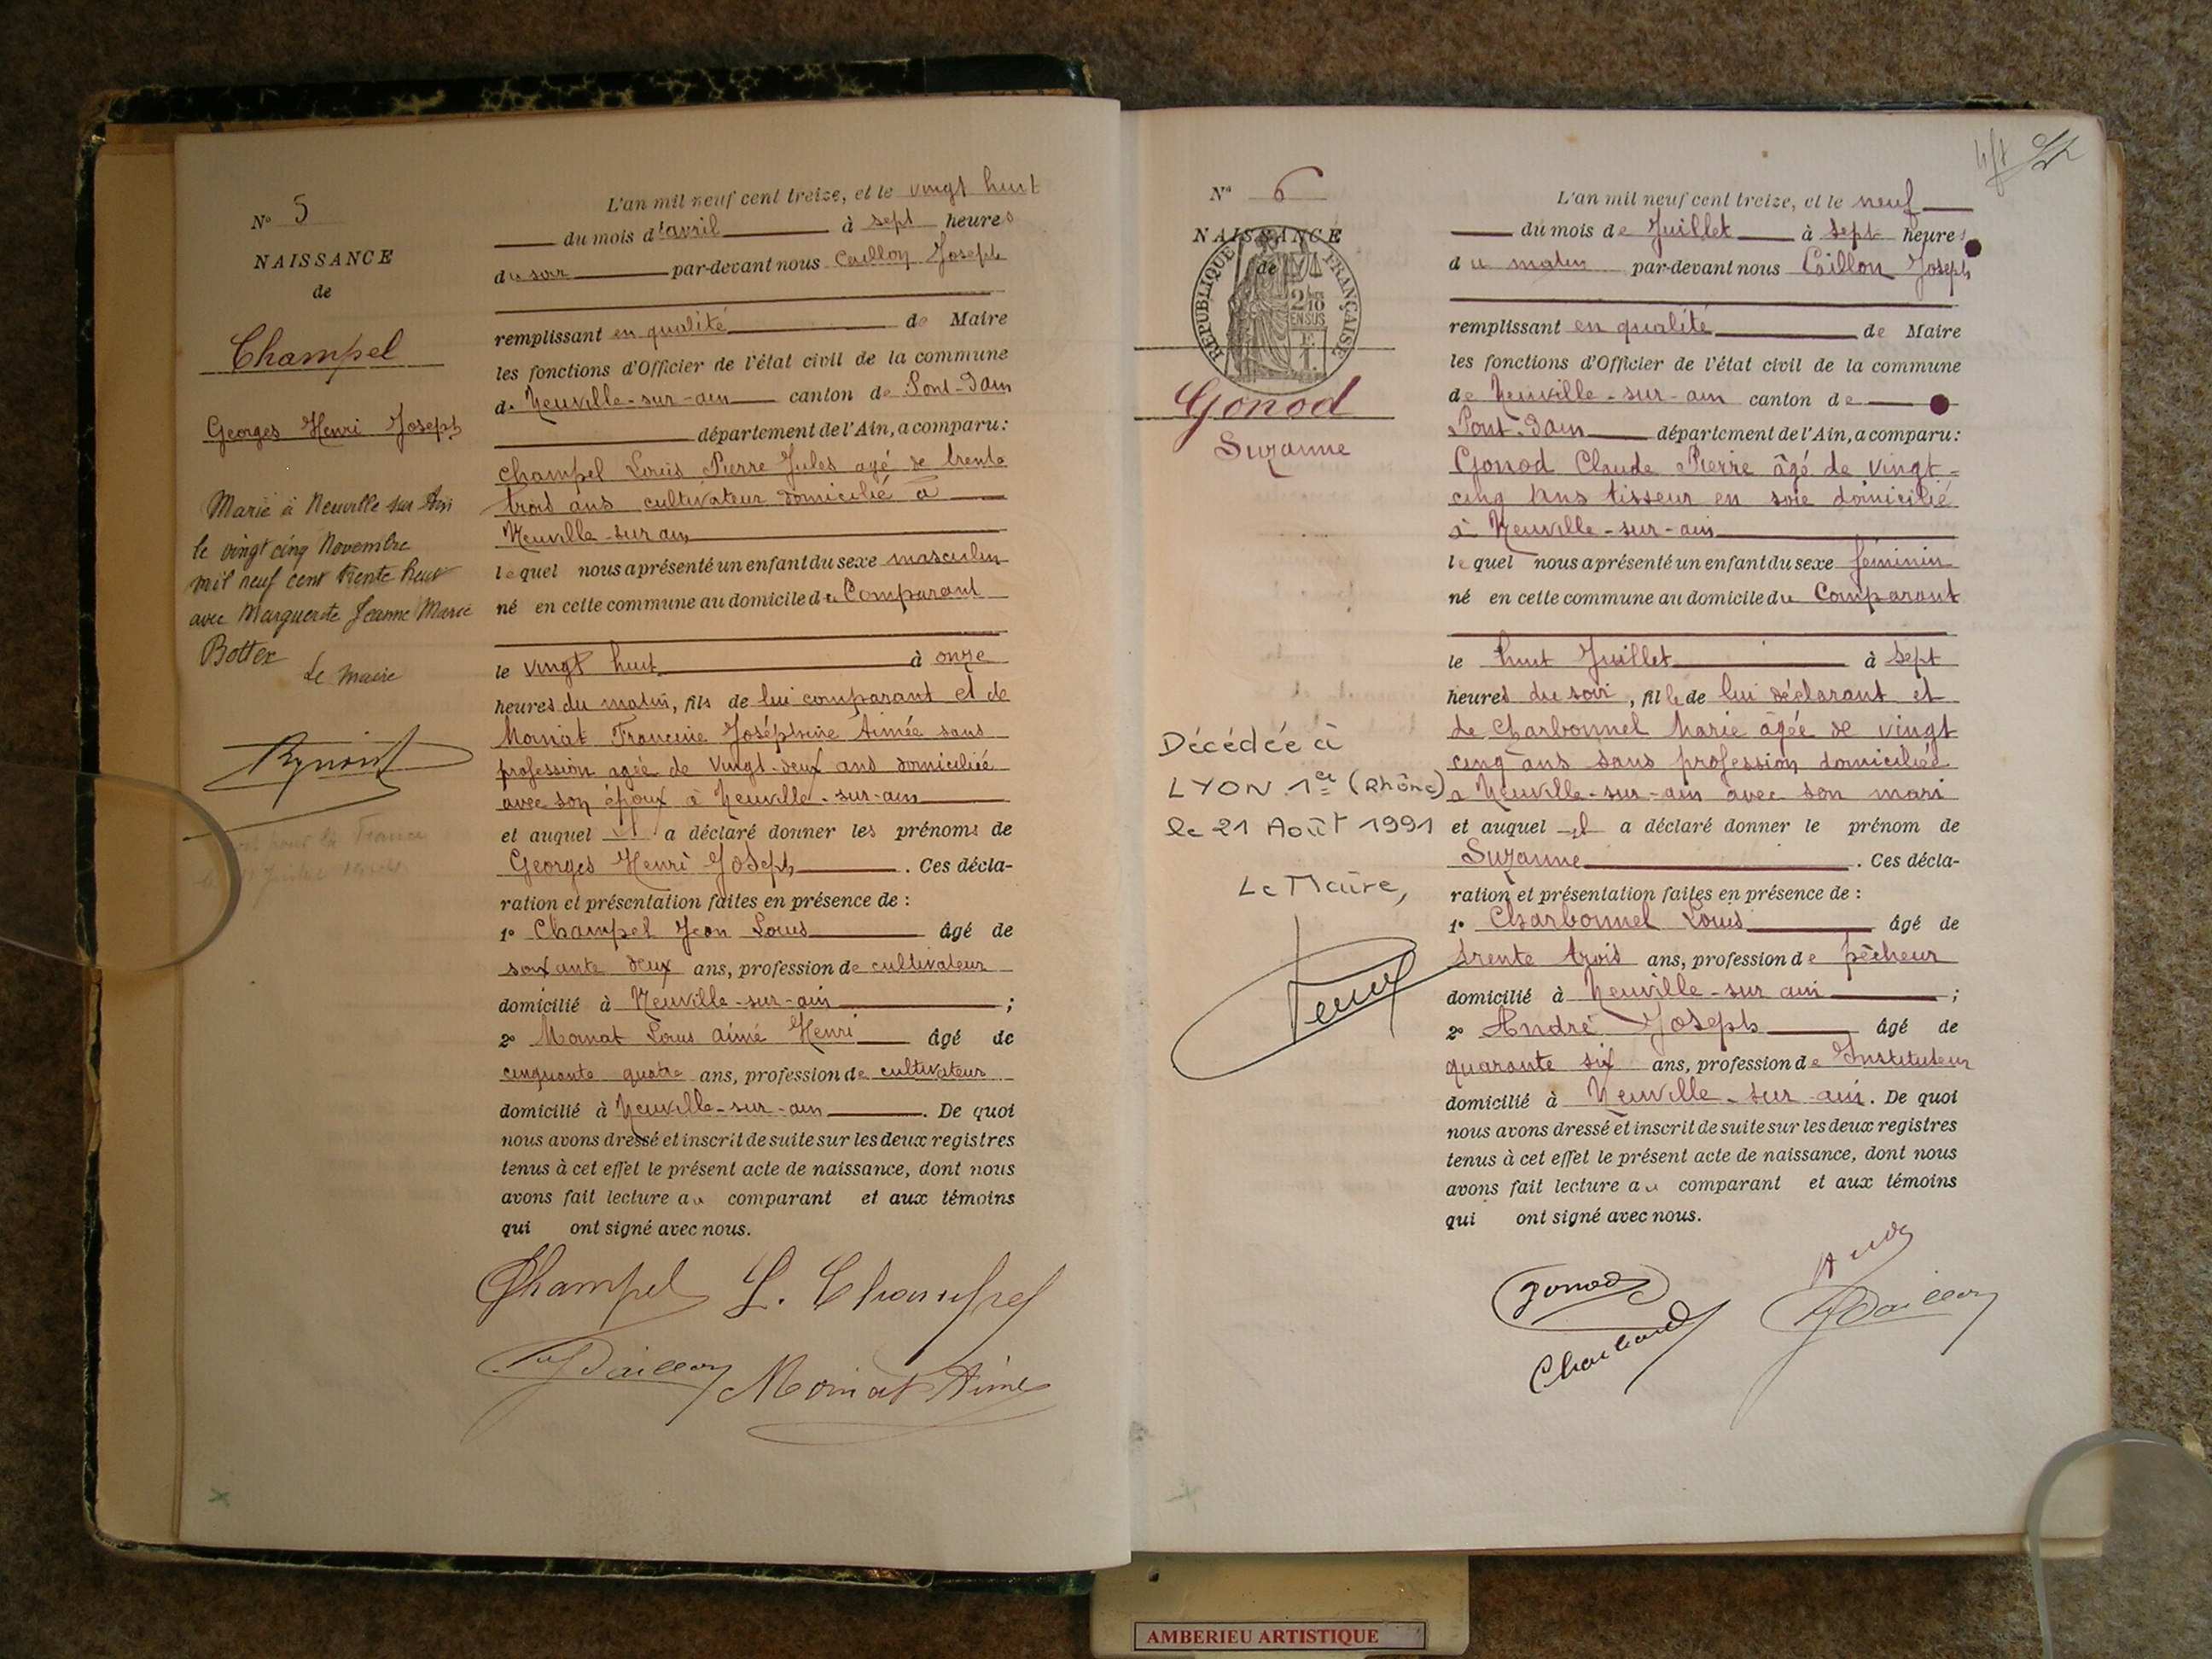 N° 5
NAISSANCE
de
Champel
Georges Henri Joseph
Marié à Neuville sur Ain
le vingt cinq Novembre
mil neuf cent trente
avec Marguerite Jeanne Marie
Bottex
Le Maire
pour la France
L'an mil neuf cent treize, et le vingt huit
du mois d'avril à sept heures
du soir par-devant nous Caillon Joseph
remplissant en qualité de Maire
les fonctions d'Officier de l'état civil de la commune
de Neuville-sur-ain canton de Pont-d'ain
département de l'Ain, a comparu :
Champel Louis Pierre Jules agé de trente
trois ans cultivateur domicilié à
Neuville-sur ain
lequel nous a présenté un enfant du sexe masculin
né en cette commune au domicile du Comparant
le vingt huit à onze
heures du matin, fils de lui comparant et de
Francine Joséphine Aimée sans
profession agée de vingt-deux ans domiciliée
avec son époux à Neuville-sur-ain
et auquel il a déclaré donner les prénoms de
Georges Henri Joseph. Ces décla-
ration et présentation faites en présence de :
1° Champel Jean Louis âgé de
soixante deux ans, profession de cultivateur
domicilié à Neuville-sur-ain ;
2° Louis aimé Henri âgé de
cinquante quatre ans, profession de cultivateur
domicilié à Neuville-sur-ain. De quoi
nous avons dressé et inscrit de suite sur les deux registres
tenus à cet effet le présent acte de naissance, dont nous
avons fait lecture au comparant et aux témoins
qui ont signé avec nous.
Champel L. Champel
Caillon Aimé
N° 6
NAISSANCE
de
RÉPUBLIQUE FRANÇAISE
2/10
EN SUS
Gonod
Suzanne
Décédée à
LYON 1er (Rhône)
le 21 Août 1991
Le Maire,
L'an mil neuf cent treize, et le neuf
du mois de Juillet à sept heures
du matin par-devant nous Caillon Joseph
remplissant en qualité de Maire
les fonctions d'Officier de l'état civil de la commune
de Neuville-sur-ain canton de
Pont-d'ain département de l'Ain, a comparu :
Gonod Claude Pierre âgé de vingt-
cinq ans tisseur en soie domicilié
à Neuville-sur-ain
lequel nous a présenté un enfant du sexe féminin
né en cette commune au domicile du Comparant
le huit Juillet à sept
heures du soir, fille de lui déclarant et
de Charbonnel Marie âgée de vingt
cinq ans sans profession domiciliée
à Neuville-sur-ain avec son mari
et auquel il a déclaré donner le prénom de
Suzanne. Ces décla-
ration et présentation faites en présence de :
1° Charbonnel Louis âgé de
trente trois ans, profession de pêcheur
domicilié à Neuville-sur ain ;
2° André Joseph âgé de
quarante six ans, profession de Instituteur
domicilié à Neuville-sur ain. De quoi
nous avons dressé et inscrit de suite sur les deux registres
tenus à cet effet le présent acte de naissance, dont nous
avons fait lecture au comparant et aux témoins
qui ont signé avec nous.
Gonod
Caillon
AMBERIEU ARTISTIQUE